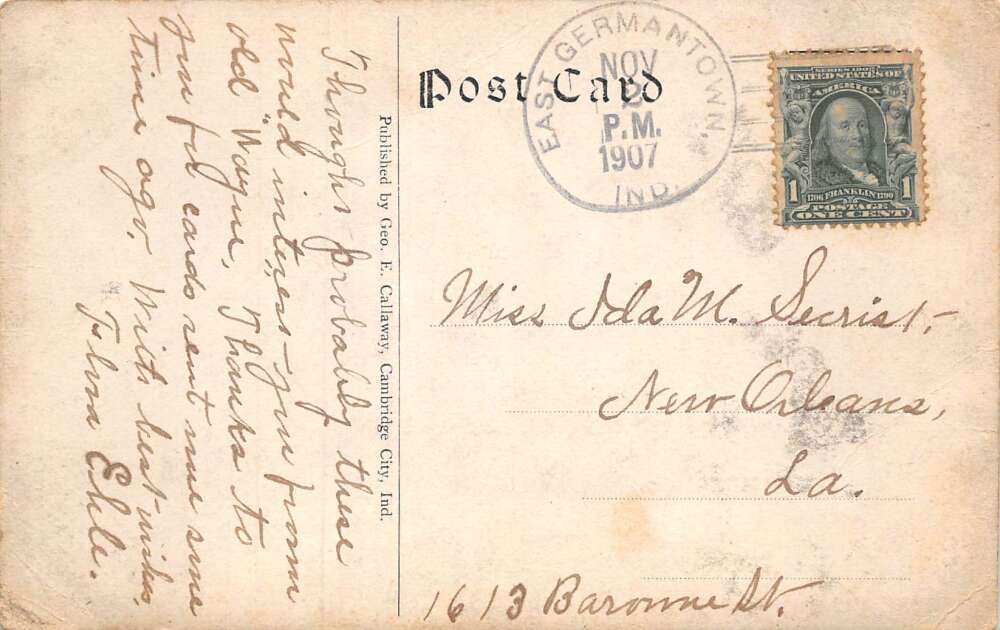 Thought probably these
would interest you from
old "Wayne". Thanks to
you for cards sent me some
time ago. With best wishes,
Flora Ehle.
Published by Geo. E. Callaway, Cambridge City, Ind.
Post Card
EAST GERMANTOWN,
NOV
2
P.M.
1907
IND.
SERIES 1902
UNITED STATES OF
AMERICA
1 1
1706 FRANKLIN 1790
POSTAGE
ONE CENT
Miss Ida M. Secrist,
New Orleans,
La.
1613 Baronne St.